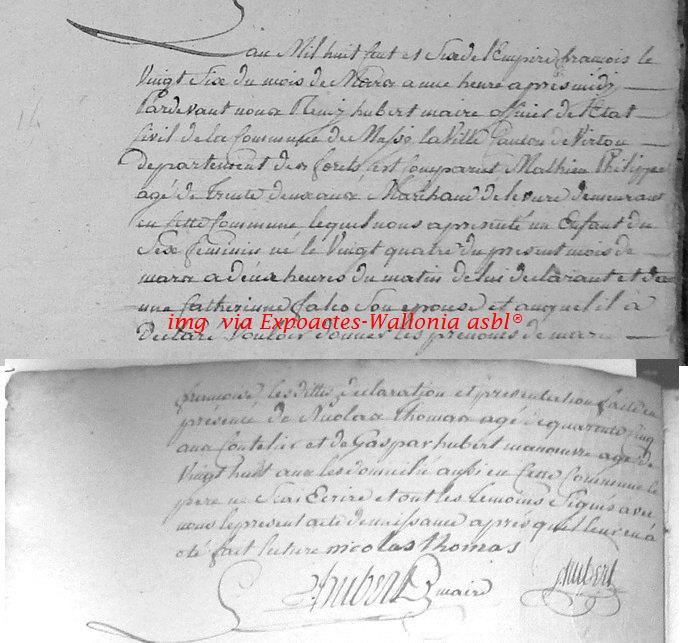 Lan Mil huit cent et Six de l'Empire francois le
Vingt Six du mois de Mars a une heure apres midy
Pardevant nous hubert maire officier de l'Etat
Civil de la Commune de Musso la Ville Canton de Virton
departement des forets, est Comparut Mathieu Philippe
agé de Trente deux ans Marchand demeurant
en Cette Commune, lequel nous a presenté un Enfant du
Sex feminin né le Vingt quatre du present mois de
mars a deux heures du matin de lui declarant et de
une Catherinne falco Son epouse et auquel il a
Declaré Vouloir donner les prenoms de marie
img via Expoactes-Wallonia asbl®
francoise, les dittes declaration et presentation faite en
présence de Nicolas Thomas agé de quarente cinq
ans et de Gaspar hubert manouvre agé de
Vingt huit ans les domicilié aussi en Cette Commune le
pere ne Scai Ecrire et ont les temoins Signés avec
nous le present acte de naissance apres quil leur en a
été fait lecture nicolas thomas
hubert maire hubert